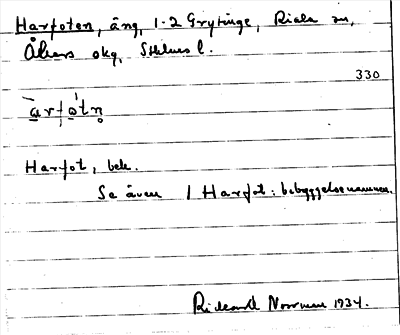 Harfoten, äng, 1-2 Grytinge, Riala sn,
Åkers skg, Sthlms l.
330
Harfot, bek.
Se även 1 Harfot: bebyggelsenamnen.
Rickard Norrman 1934.